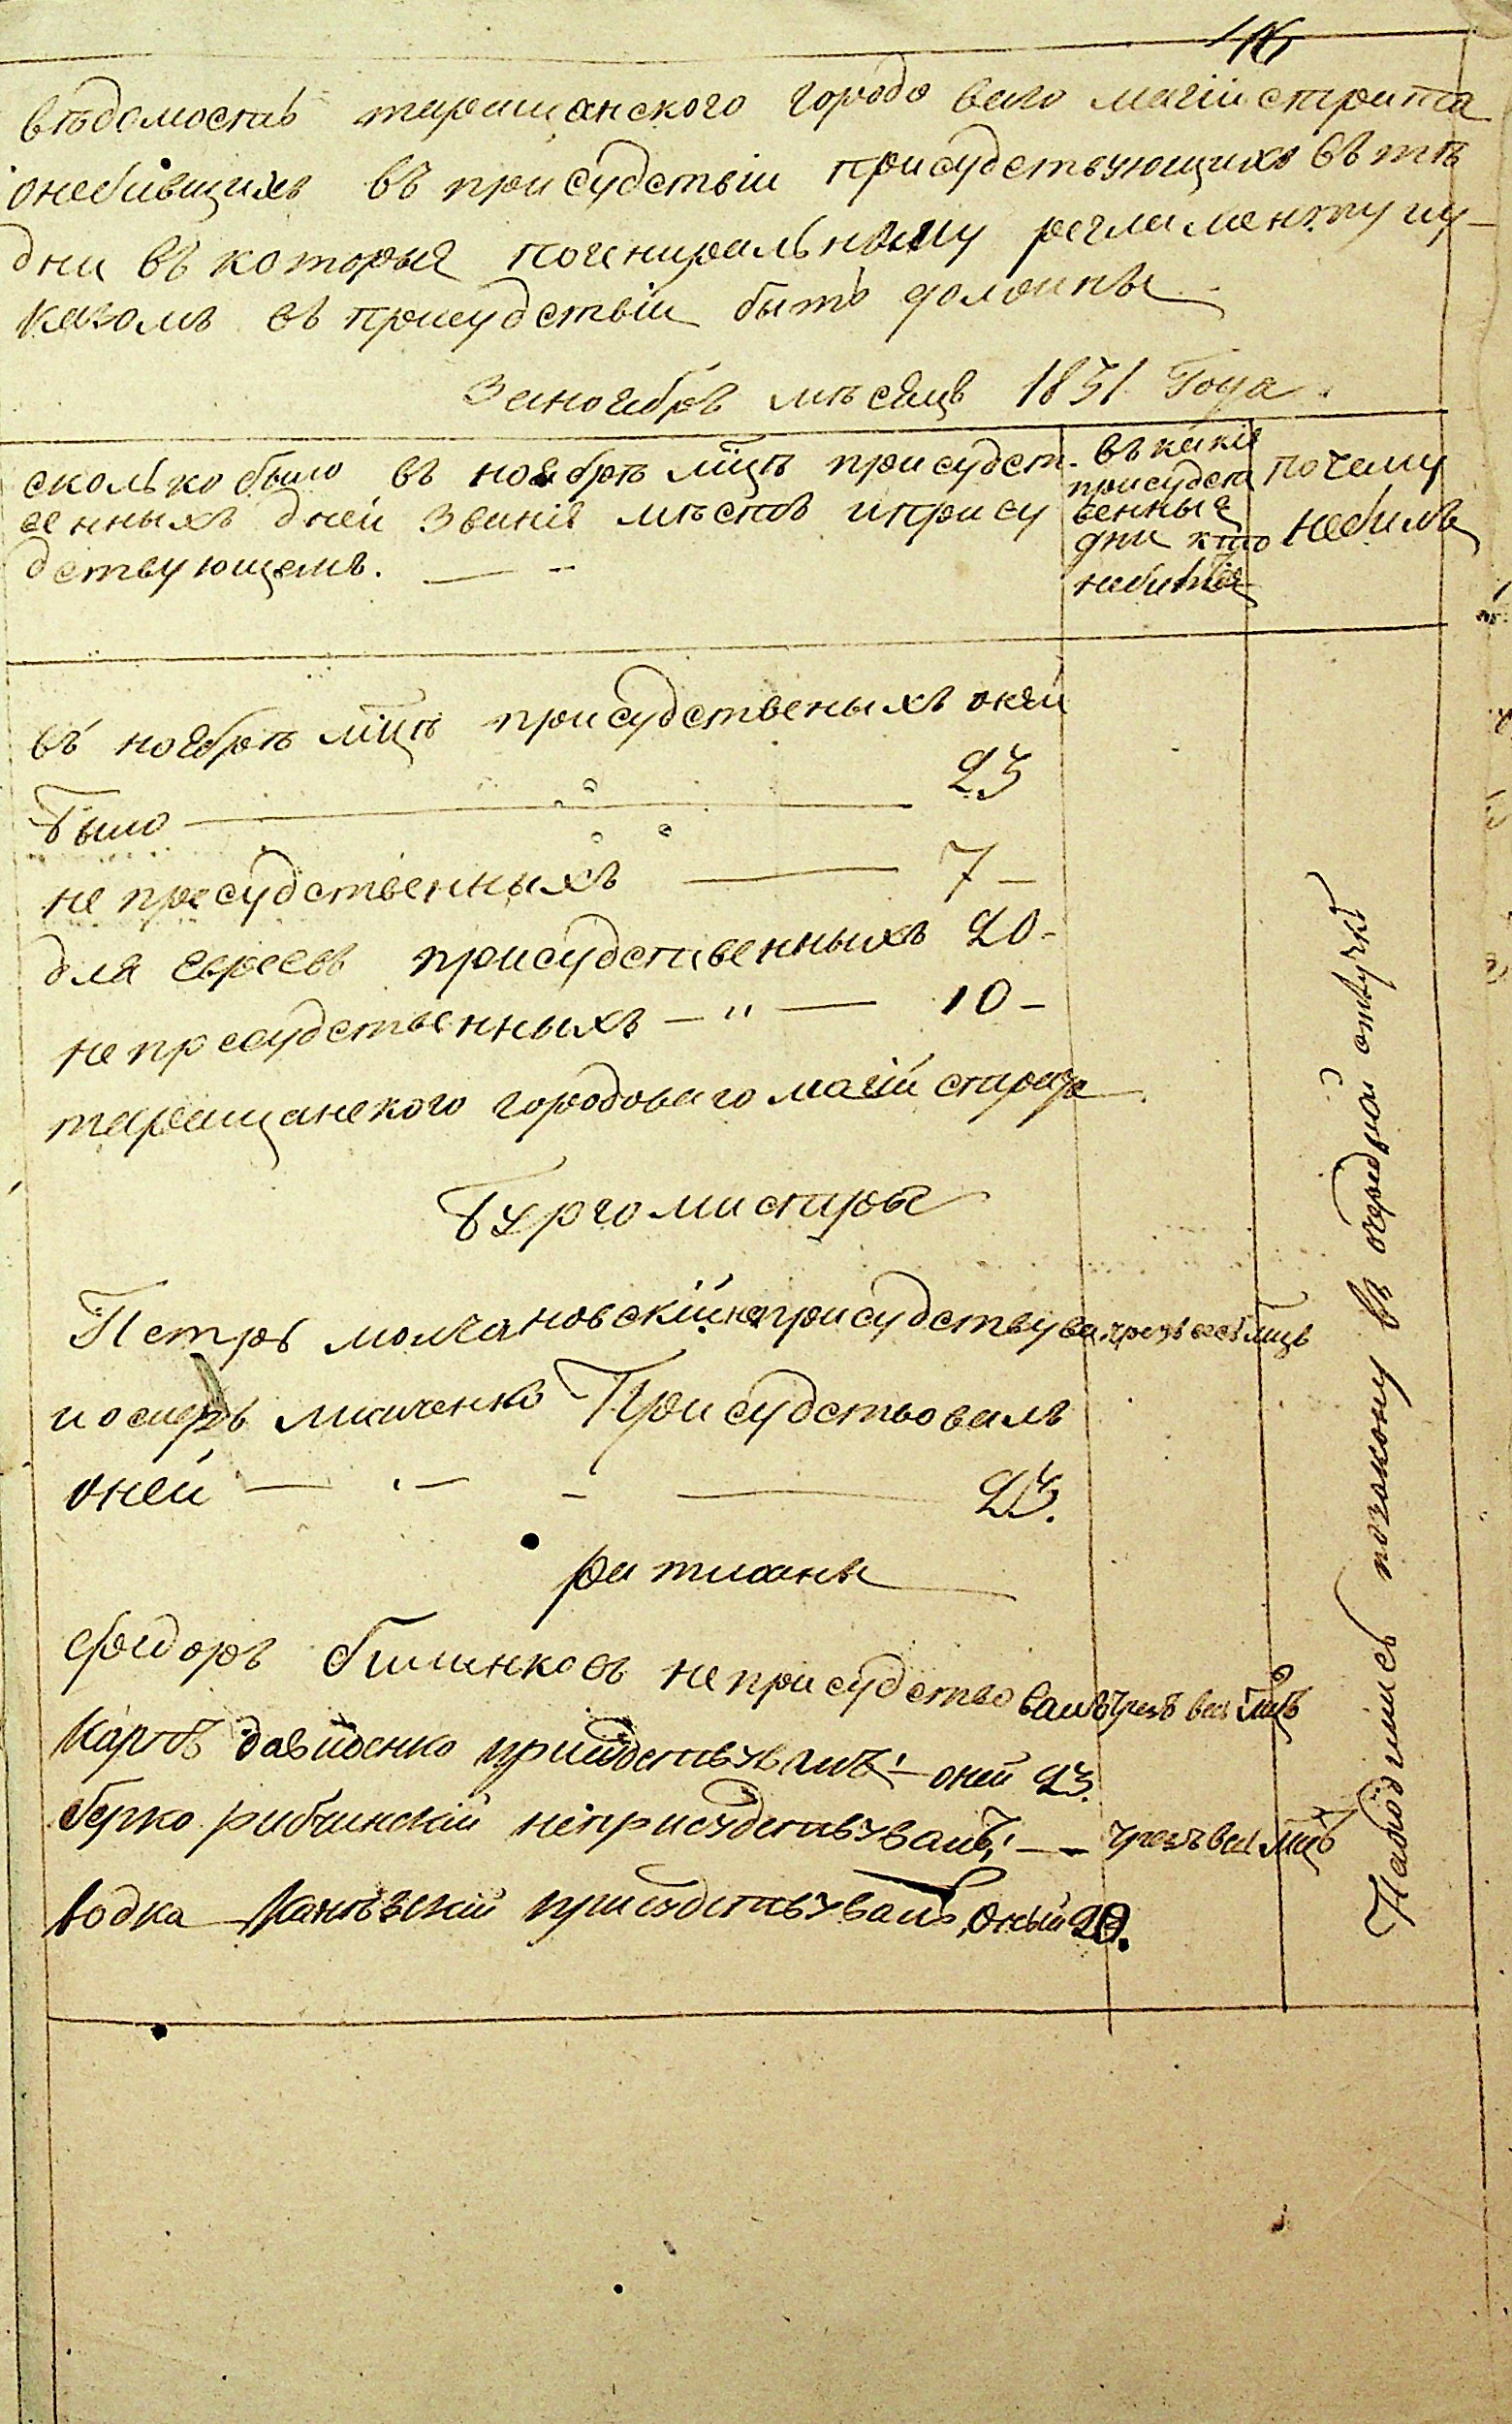 46
вѣдомость таращанского городоваго магистрата
онебившихъ въ присудствіи присудствующихъ въ тѣ
дни въ которыя погениральному регламенту иу-
казомъ въ присудствіи быть должны
Заноябрь мѣсяцъ 1831 Года.
сколько было въ ноябрѣ мцѣ присудст-
венныхъ дней Званіе мѣстъ ипрису
дствующемъ.
въ какіе
присудст
венныя
дни кто
небилъ
почему
небилъ
въ ноябрѣ мцѣ присудственыхъ дней
Было 23
не присудственныхъ 7
для евреевъ присудственныхъ 20
не присудственныхъ — " — 10
таращанского городоваго магистрата
Бургомистры
Петръ молчановскій неприсудствува чрезъ весь мцъ
иосифъ Присудствовалъ
дней 23.
ратманы
феидоръ билинковъ неприсудствовалъ чрезъ весь мцъ
Карпъ давиденко присудствувалъ дней 23.
берко неприсудствувалъ — чрезъ весь мцъ
присудствувалъ дней 20.
Находились позакону въ очередной отлучкѣ